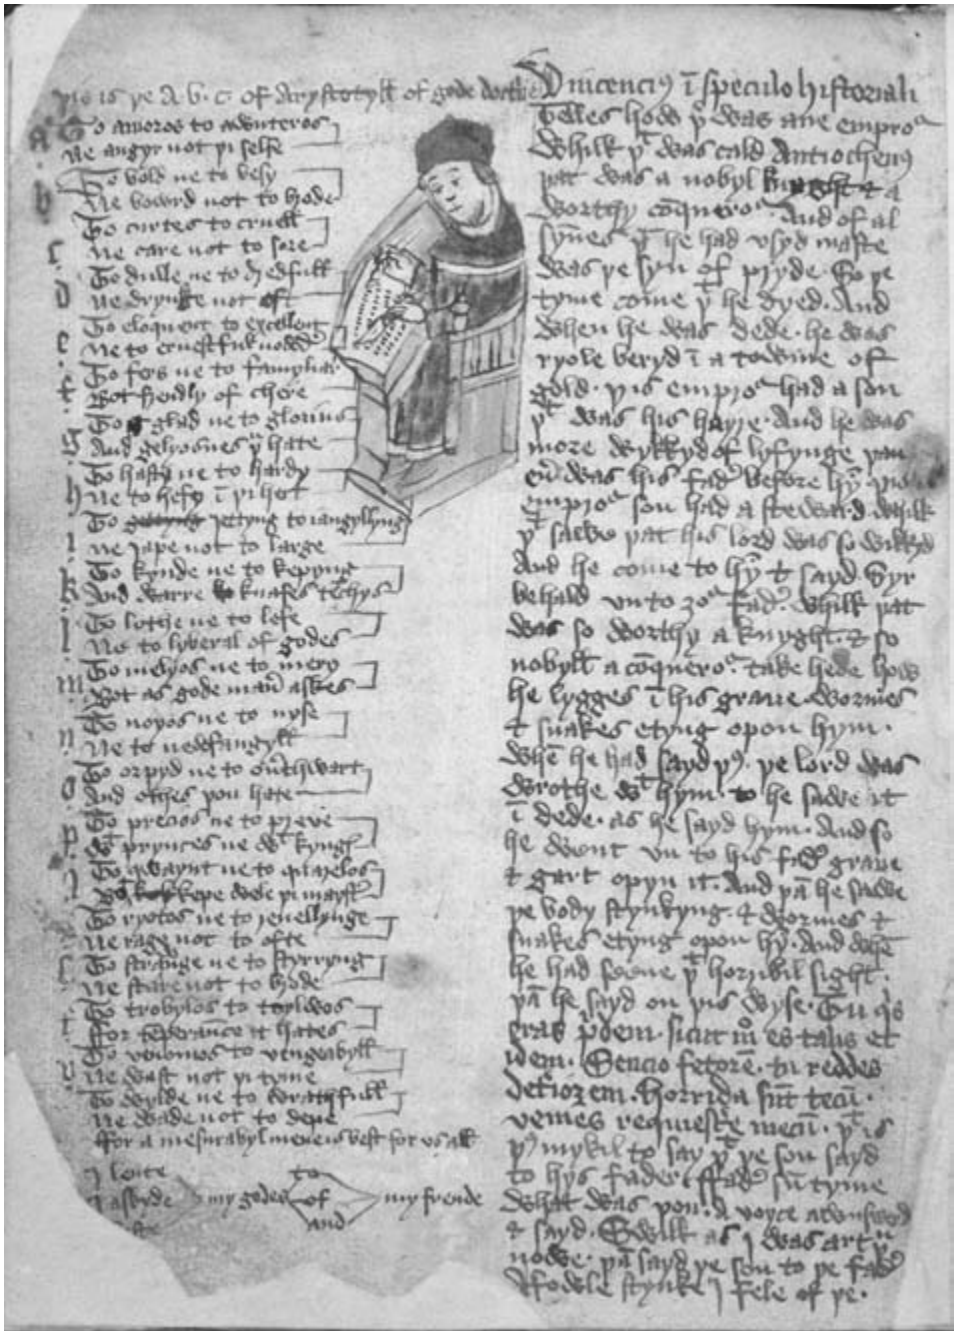 þis is þe A. b. c. of Arystotyll of gode doctrine
a To amoros to awnteros
Ne angyr not þi selfe
b To bold ne to besy
Ne bowrd not to brode
c To curtes to cruell
Ne care not to sore
d To dulle ne to dredfull
Ne drynke not oft
e To eloquent to excellent
Ne to ernestfull
f To fers ne to famyliar
Bot frendly of chere
g To glad ne to glorius
And gelosnes þu hate
h To hasty ne to hardy
Ne to hefy ī þi hert
i To gettyng iettyng to iangyllyng
Ne iape not to large
k To kynde ne to kepyng
And warre knafes techys
l To lothe ne to lefe
Ne to lyberal of godes
m To melyos ne to mery
Bot as gode maner askes
n To noyos ne to nyse
Ne to newefangyll
o To orpyd ne to ouerthwart
And othes þou hate
p To precios ne to preve
wt prynces ne wt kynges
q To qwaynt ne to qwarelos
kepe wele þi mayster
r To ryotos ne to reuellynge
Ne rage not to ofte
s To strange ne to styrryng
Ne stare not to brode
t To trobylos to
For temperance it hates
v To venomos to vengeabyll
Ne wast not þi tyme
To wylde ne to wrathfull
Ne wade not to depe
ffor a mesurabyl mene is best for vs all
I lente to
I my godes of my frende
and
Vincencius ī speculo historiali
Telles how þr was ane emproʳ
Whilk þt was cald Antiochenus
þat was a nobyl knyght & a
worthy cōqueroʳ. And of al
synnes þt he had vsyd maste
was þe syn of pryde. So þe
tyme come þt he dyed. And
when he was dede. he was
ryole beryd ī a towme of
gold. þis emproʳ had a son
þt was his hayre. And he was
more wykkyd of lyfynge þan
euer was his fader before hym þis
emproʳ son had a steward whilk
þt sawe þat his lord was so wikkyd
And he come to hym & sayd. Syr
behald vnto ȝoʳ fader. Whilk þat
was so worthy a knyght. & so
nobyll a cōqueroʳ. take hede how
he lygges ī his graue. wormes
& snakes etyng opon hym.
When he had sayd þus. þe lord was
wrothe wt hym. to he sawe it
ī dede. as he sayd hym. And so
he went vn to his fader graue
& gart opyn it. And þan he sawe
þe body stynkyng. & wormes &
snakes etyng opon hym. And when
he had seene þt horribil sight.
þan he sayd on þis wyse. Tu quis
eras pridem. sicut modo es talis et
idem. Sencio fetorem. tu reddes
deteriorem. horrida sunt tecum.
vermes requiescere mecum. þt is
þus mykil to say þt þe son sayd
to hys fader. ffader sum tyme
what was þou. A voyce awnswerd
& sayd. Swilk as I was art þu
nowe. þan sayd þe son to þe fader
A fowle stynke I fele of þe.